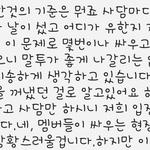 한것의 기준은 뭐죠 사담마다
날이 섰고 어디가 유한지
이 문제로 몇번이나 싸우고
으니 말투가 좋게 나갈리는 없
송하게 생각하고 있습니다
꺼냈던 걸로 알고있어요 하
고 사담만 하시니 저희 입장
다.네, 멤버들이 싸우는 현장
황스러울겁니다.하지만 이